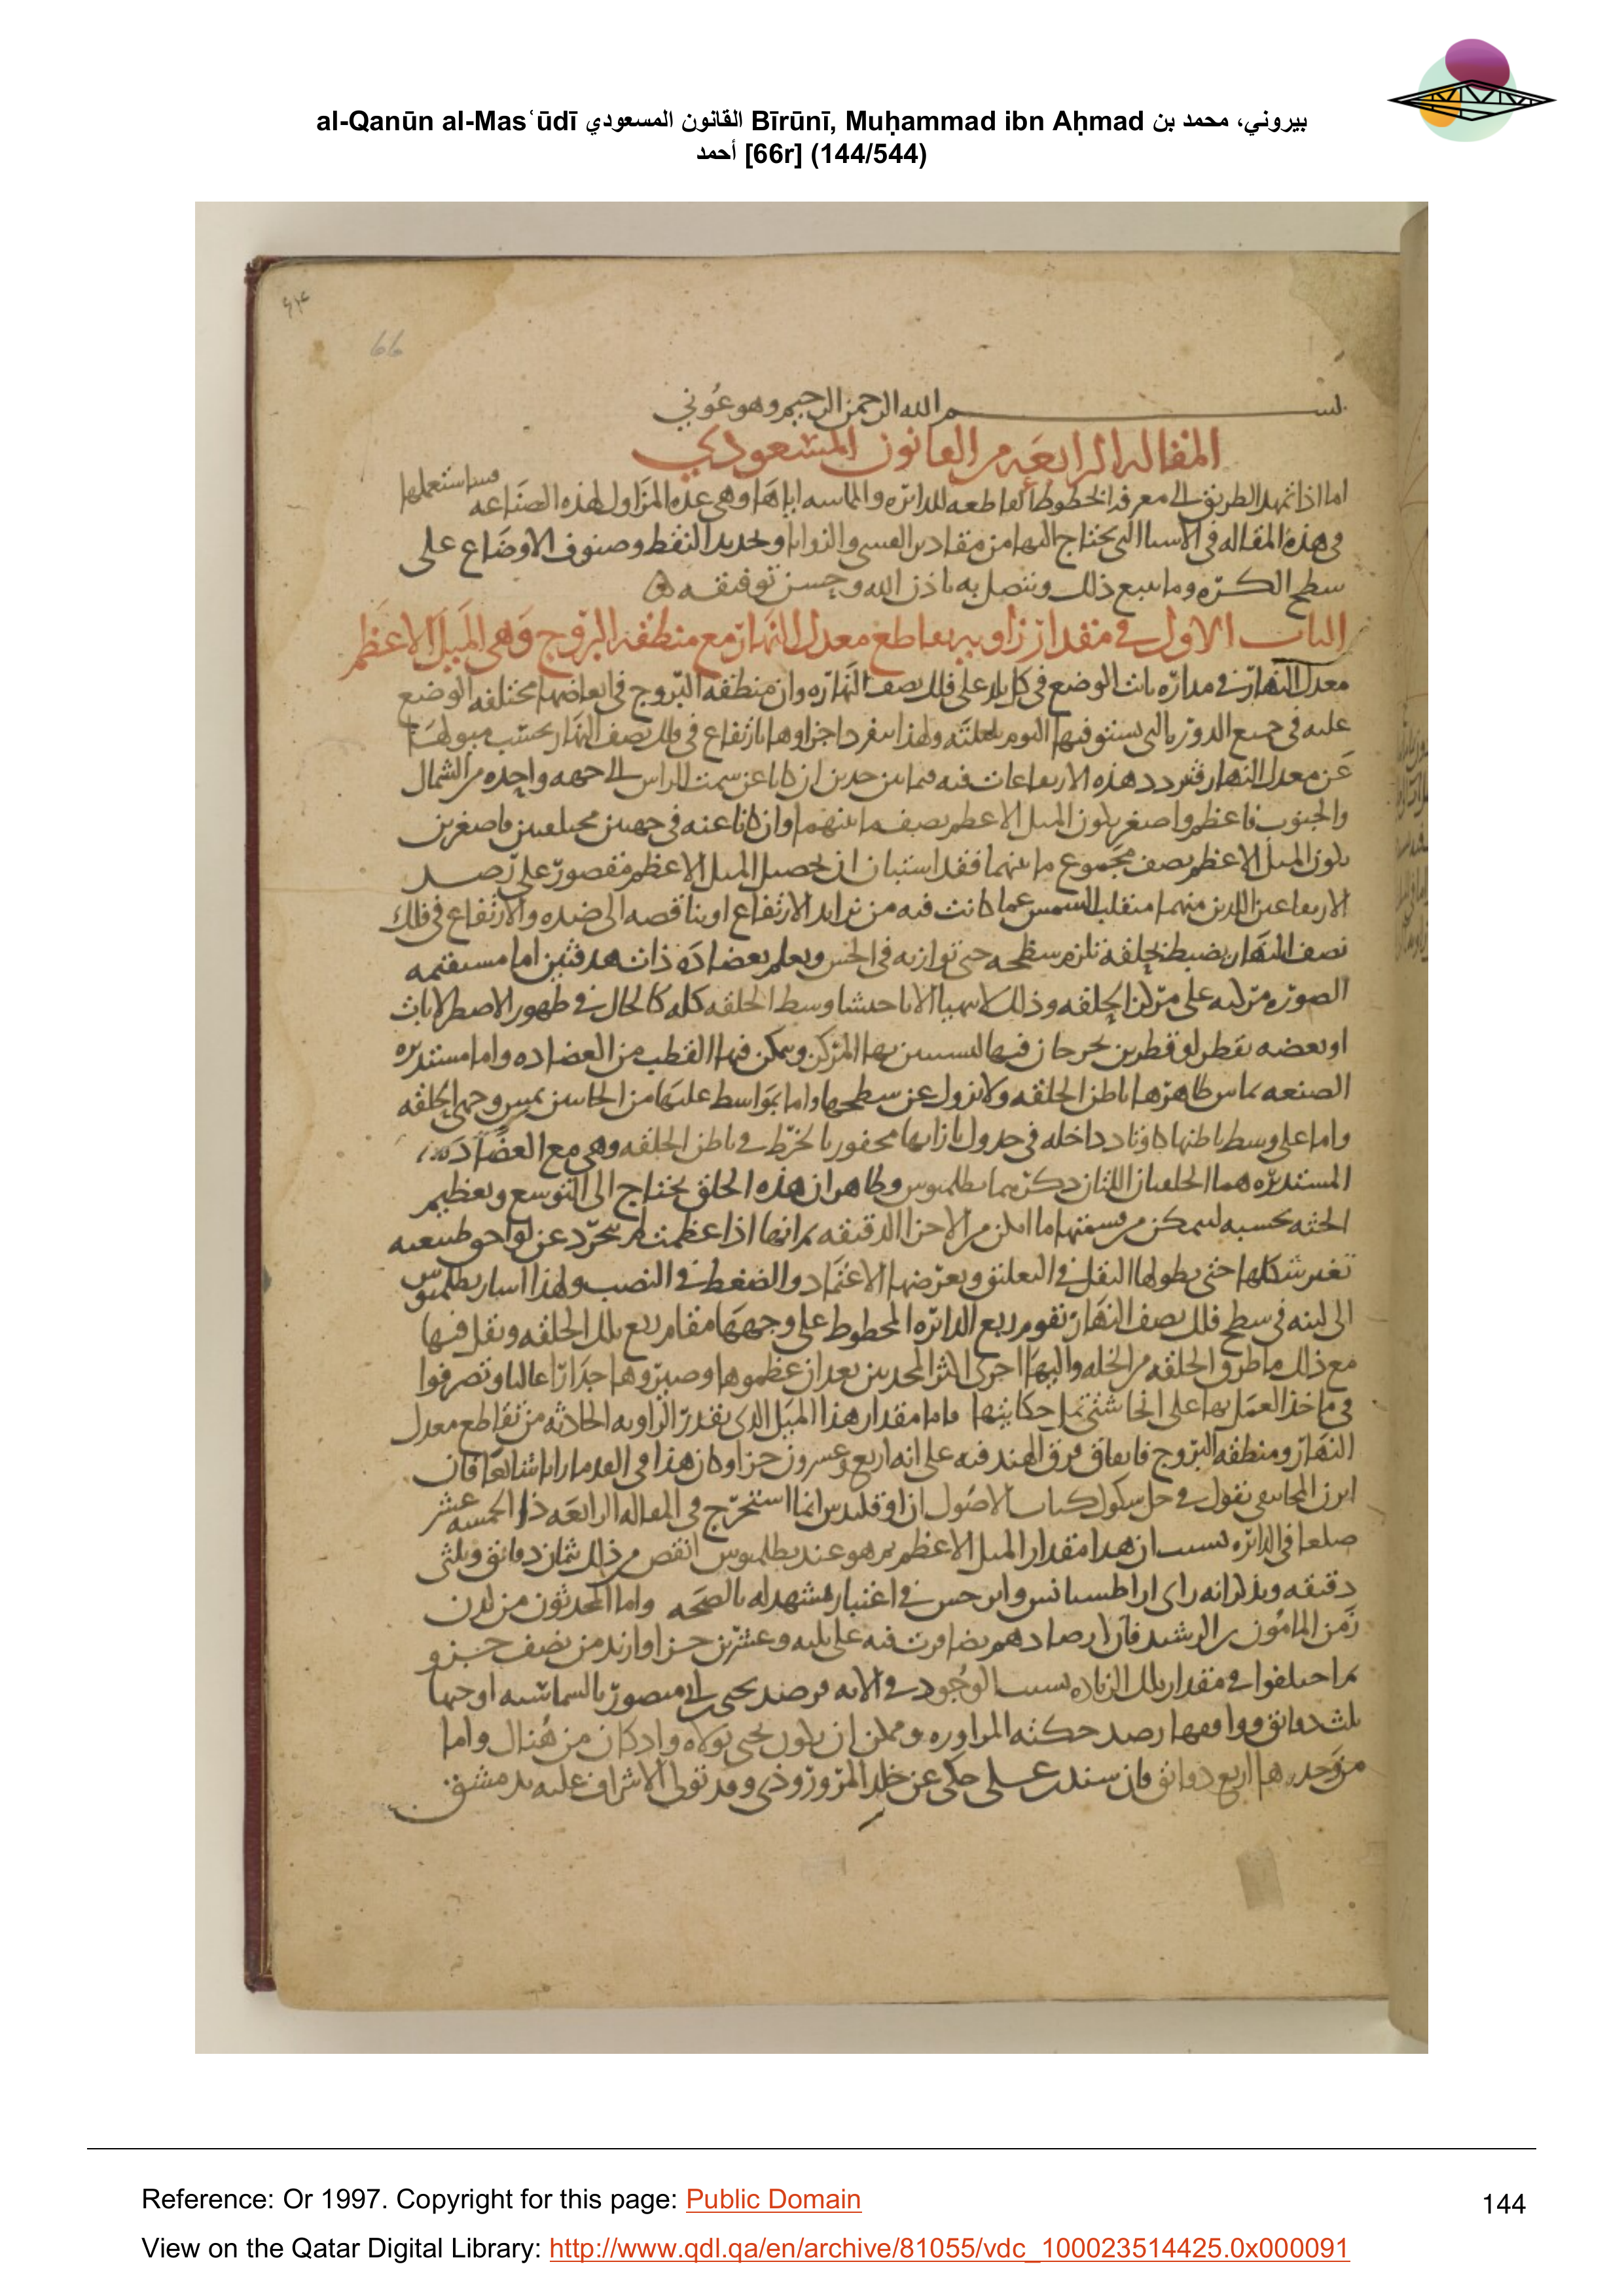 al-Qanūn al-Masʿūdī القانون المسعودي Bīrūnī, Muḥammad ibn Aḥmad بيروني، محمد بن
أحمد [66r] (144/544)
66
بسم الله الرحمن الرحيم وهو عوني
المقاله الرابعه من القانون المسعودي
اما اذا تمهد الطريق الى معرفه الخطوط القاطعه للدائره والماسه اياها وهي عده المزاول لهذه الصناعه فساستعملها
في هذه المقاله في الاسيا التي يحتاج اليها من مقادير القسي والزوايا وتحديد النقط وصنوف الاوضاع على
سطح الكره وما يتبع ذلك ويتصل به باذن الله وحسن توفيقه
الباب الاول في مقدار زاويه تقاطع معدل النهار مع منطقه البروج وهي الميل الاعظم
معدل النهار في مداره ثابت الوضع في كل بلد على فلك نصف النهار وان منطقه البروج في ابعاضها مختلفه الوضع
عليه في جميع الدور
عن معدل النهار فتردد هذه الارتفاعات فيه فيما بين حدين ان كانا عن سمت الراس الى جهه واحده من الشمال
والجنوب فاعظم واصغر يكون الميل الاعظم نصف ما بينهما وان كانا عنه في جهتين مختلفتين فاصغرين
يكون الميل الاعظم نصف مجموع ما بينهما فقد استبان ان تحصيل الميل الاعظم مقصور على رصد
الارتفاعين اللذين منهما منقلب الشمس عما كانت فيه من تزايد الارتفاع او تناقصه الى ضده والارتفاع في فلك
نصف النهار يضبط بحلقه تلزم سطحه حتى توازيه في الحس ويعلم بعضاده ذات هدفتين اما مستقيمه
الصوره مركبه على مركز الحلقه وذلك لا يتهيا الا باحتشا وسط الحلقه كله كالحال في ظهور الاصطرلابات
او بعضه بقطر او قطرين يخرجان فيها ليستبين بها المركز ويمكن فيها القطب من العضاده واما مستديره
الصنعه يماس ظاهرها باطن الحلقه ولا يزول عن سطحها
واما على وسط باطنها كاوتاد داخله في جدول بازايها محفور بالخرط في باطن الحلقه وهي مع العضاده
المستديره هما الحلقتان اللتان ذكرهما بطلميوس وظاهر ان هذه الحلق يحتاج الى التوسع وتعظيم
الجثه بحسبه ليمكن من قسمتها ما امكن من الاجزا الدقيقه ثم انها اذا عظمت لم تتجرد عن لواحق طبيعيه
تغير شكلها حتى يطولها الثقل في التعليق ويعرضها الاعتماد والضغط في النصب ولهذا اشار بطلميوس
الى لبنه في سطح فلك نصف النهار تقوم ربع الدائره المخطوط على وجهها مقام ربع تلك الحلقه ويقل فيها
مع ذلك ما طرق الحلقه من الخلل واليها اجرى اكثر المحدثين بعد ان عظموها وصيروها جدارا عاليا وتصرفوا
في ماخذ العمل بها على انحا شتى تمل حكايتها فاما مقدار هذا الميل الذي يقدر الزاويه الحادثه من تقاطع معدل
النهار ومنطقه البروج فاتفاق فرق الهند فيه على انه اربع وعشرون جزا وكان هذا في القدم رايا شايعا فان
ايرن المجانيقي يقول في حل شكوك كتاب الاصول ان اوقليدس انما استخرج في المقاله الرابعه ذا الخمسه عشر
ضلعا في الدائره بسبب ان هذا مقدار الميل الاعظم ثم هو عند بطلميوس انقص من ذلك ثمان دقائق وثلثي
دقيقه ويذكر انه راي اراطسيانس وابرخس في اعتبار مشهد له بالصحه واما المحدثون من لدن
زمن المامون بن الرشيد فان ارصادهم تضافرت فيه على ثلثه وعشرين جزا وازيد من نصف جزو
ثم اختلفوا في مقدار تلك الزياده بسبب الوجود في الاله فرصد يحيى بن ابي منصور بالشماسيه اوجبها
ثلث دقائق ووافقها رصد حكته المراوره وممكن ان يكون يحيى تولاه واذ كان من هنال واما
من وجدها اربع دقائق فان سند بن على حكى عن خلد المروروذي وقد تولى الاشراف عليه بدمشق
Reference: Or 1997. Copyright for this page: Public Domain
144
View on the Qatar Digital Library: http://www.qdl.qa/en/archive/81055/vdc_100023514425.0x000091